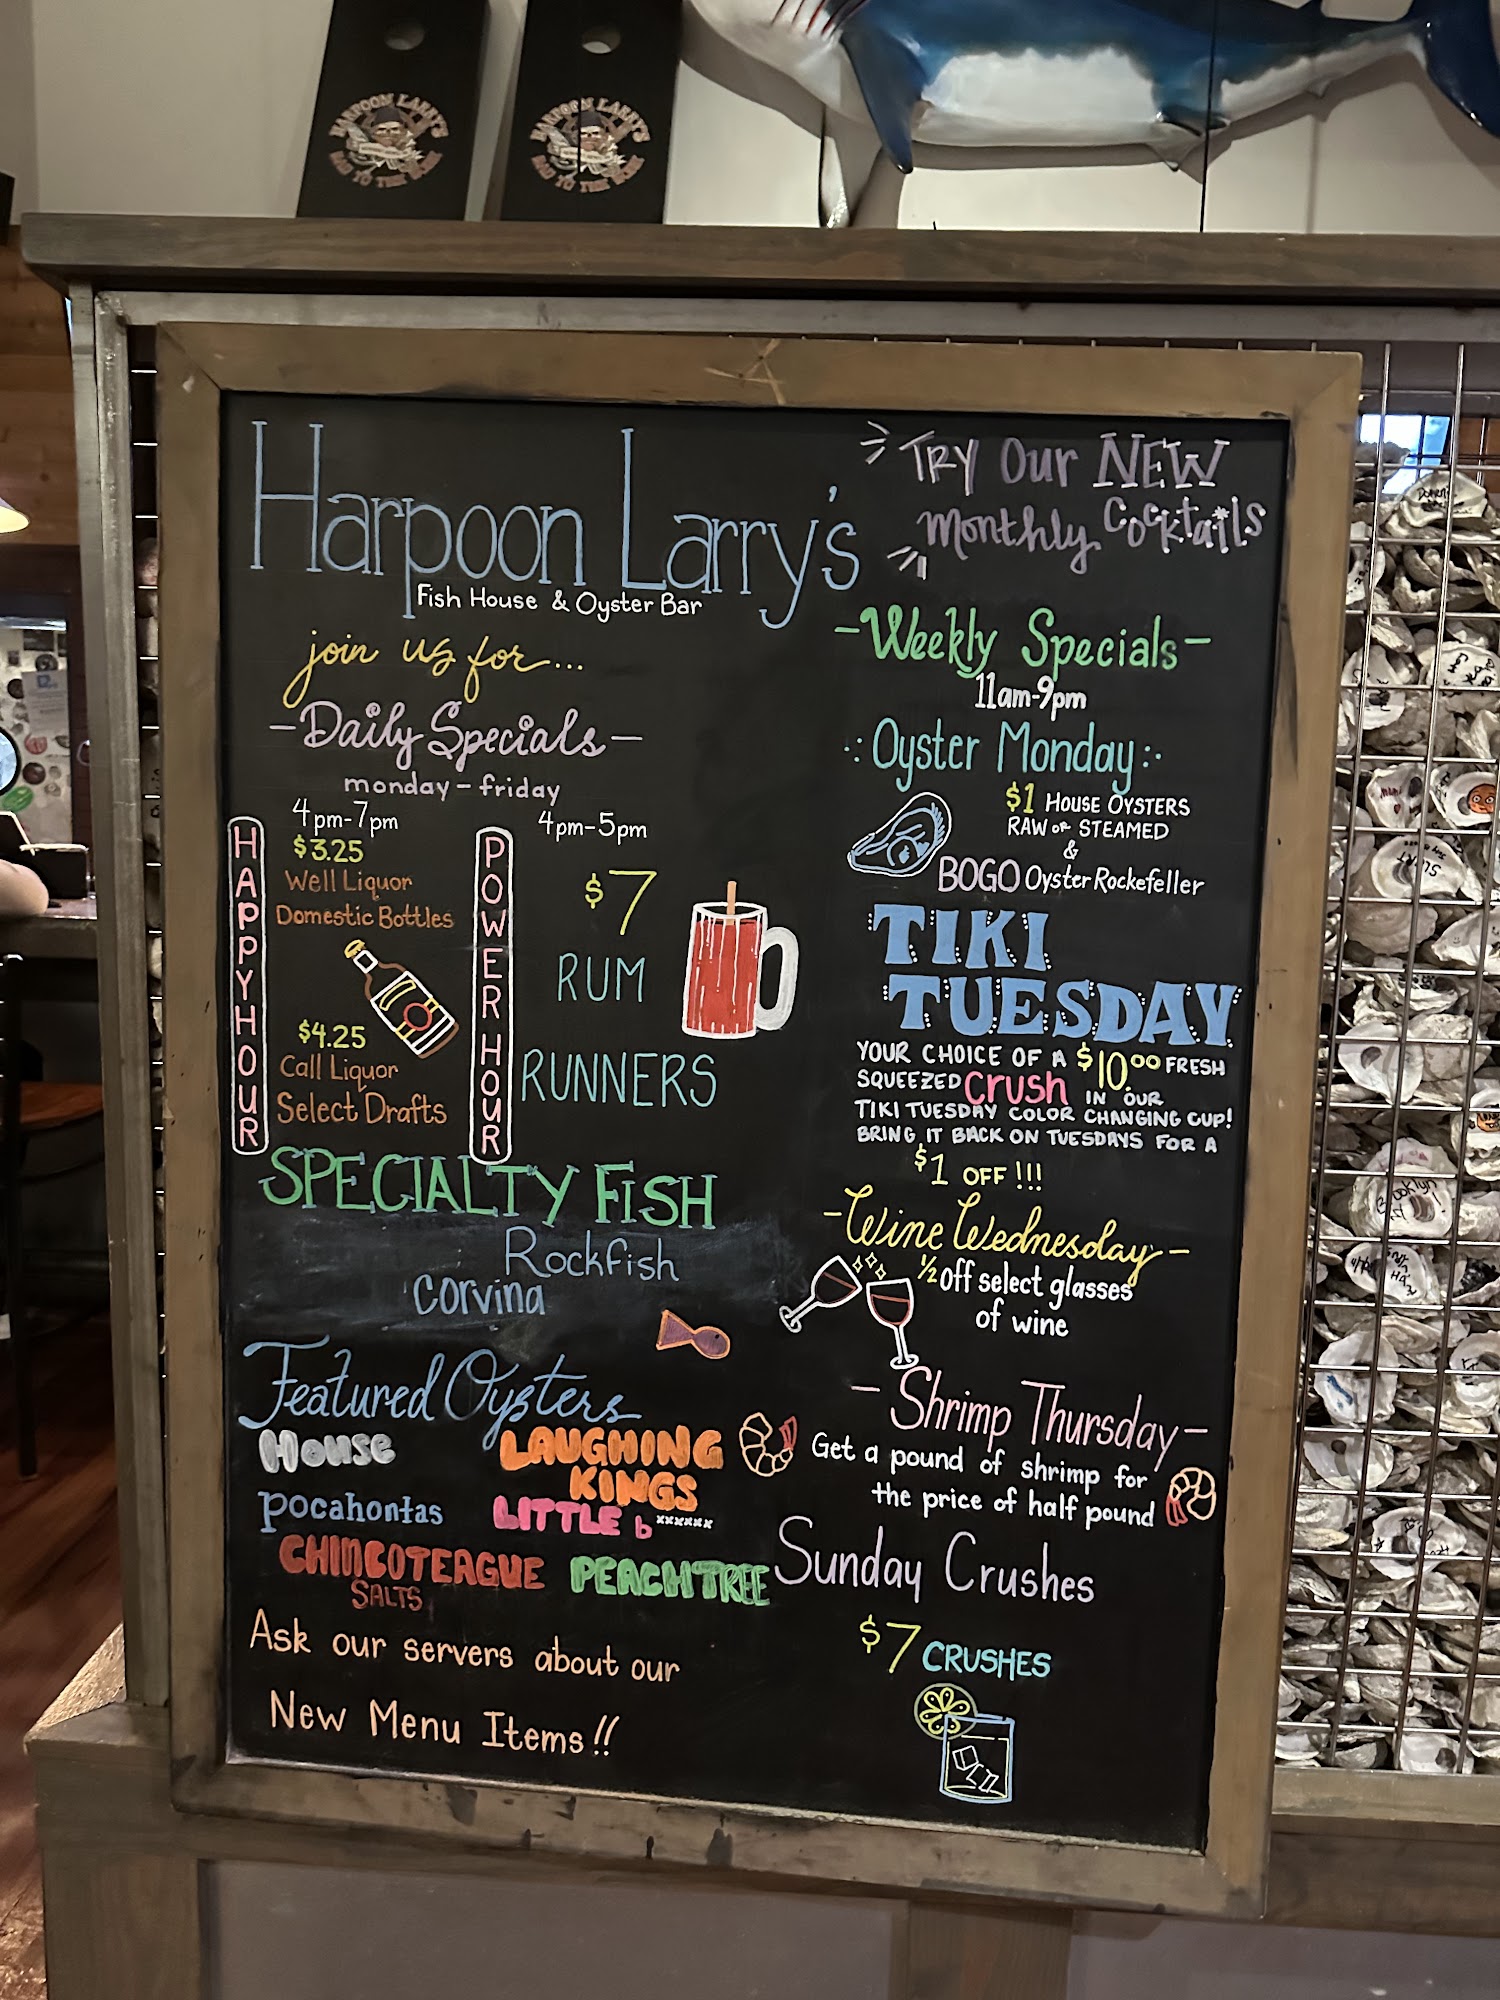 HARPOON LARRY'S
HARPOON LARRY'S
Harpoon Larry's
Fish House & Oyster Bar
join us for...
-Daily Specials-
monday-friday
4pm-7pm
HAPPY HOUR
$3.25
Well Liquor
Domestic Bottles
$4.25
Call Liquor
Select Drafts
4pm-5pm
POWER HOUR
$7
RUM
RUNNERS
SPECIALTY FISH
Rockfish
Corvina
Featured Oysters
House
LAUGHING
KINGS
pocahontas
LITTLE b******
CHINCOTEAGUE
SALTS
PEACHTREE
Ask our servers about our
New Menu Items!!
TRY Our NEW
monthly Cocktails
-Weekly Specials-
11am-9pm
Oyster Monday
$1 HOUSE OYSTERS
RAW or STEAMED
&
BOGO Oyster Rockefeller
TIKI
TUESDAY
YOUR CHOICE OF A $10.00 FRESH
SQUEEZED Crush IN OUR
TIKI TUESDAY COLOR CHANGING CUP!
BRING IT BACK ON TUESDAYS FOR A
$1 OFF!!!
-Wine Wednesday-
½ off select glasses
of wine
-Shrimp Thursday-
Get a pound of shrimp for
the price of half pound
Sunday Crushes
$7 CRUSHES
Brooklyn